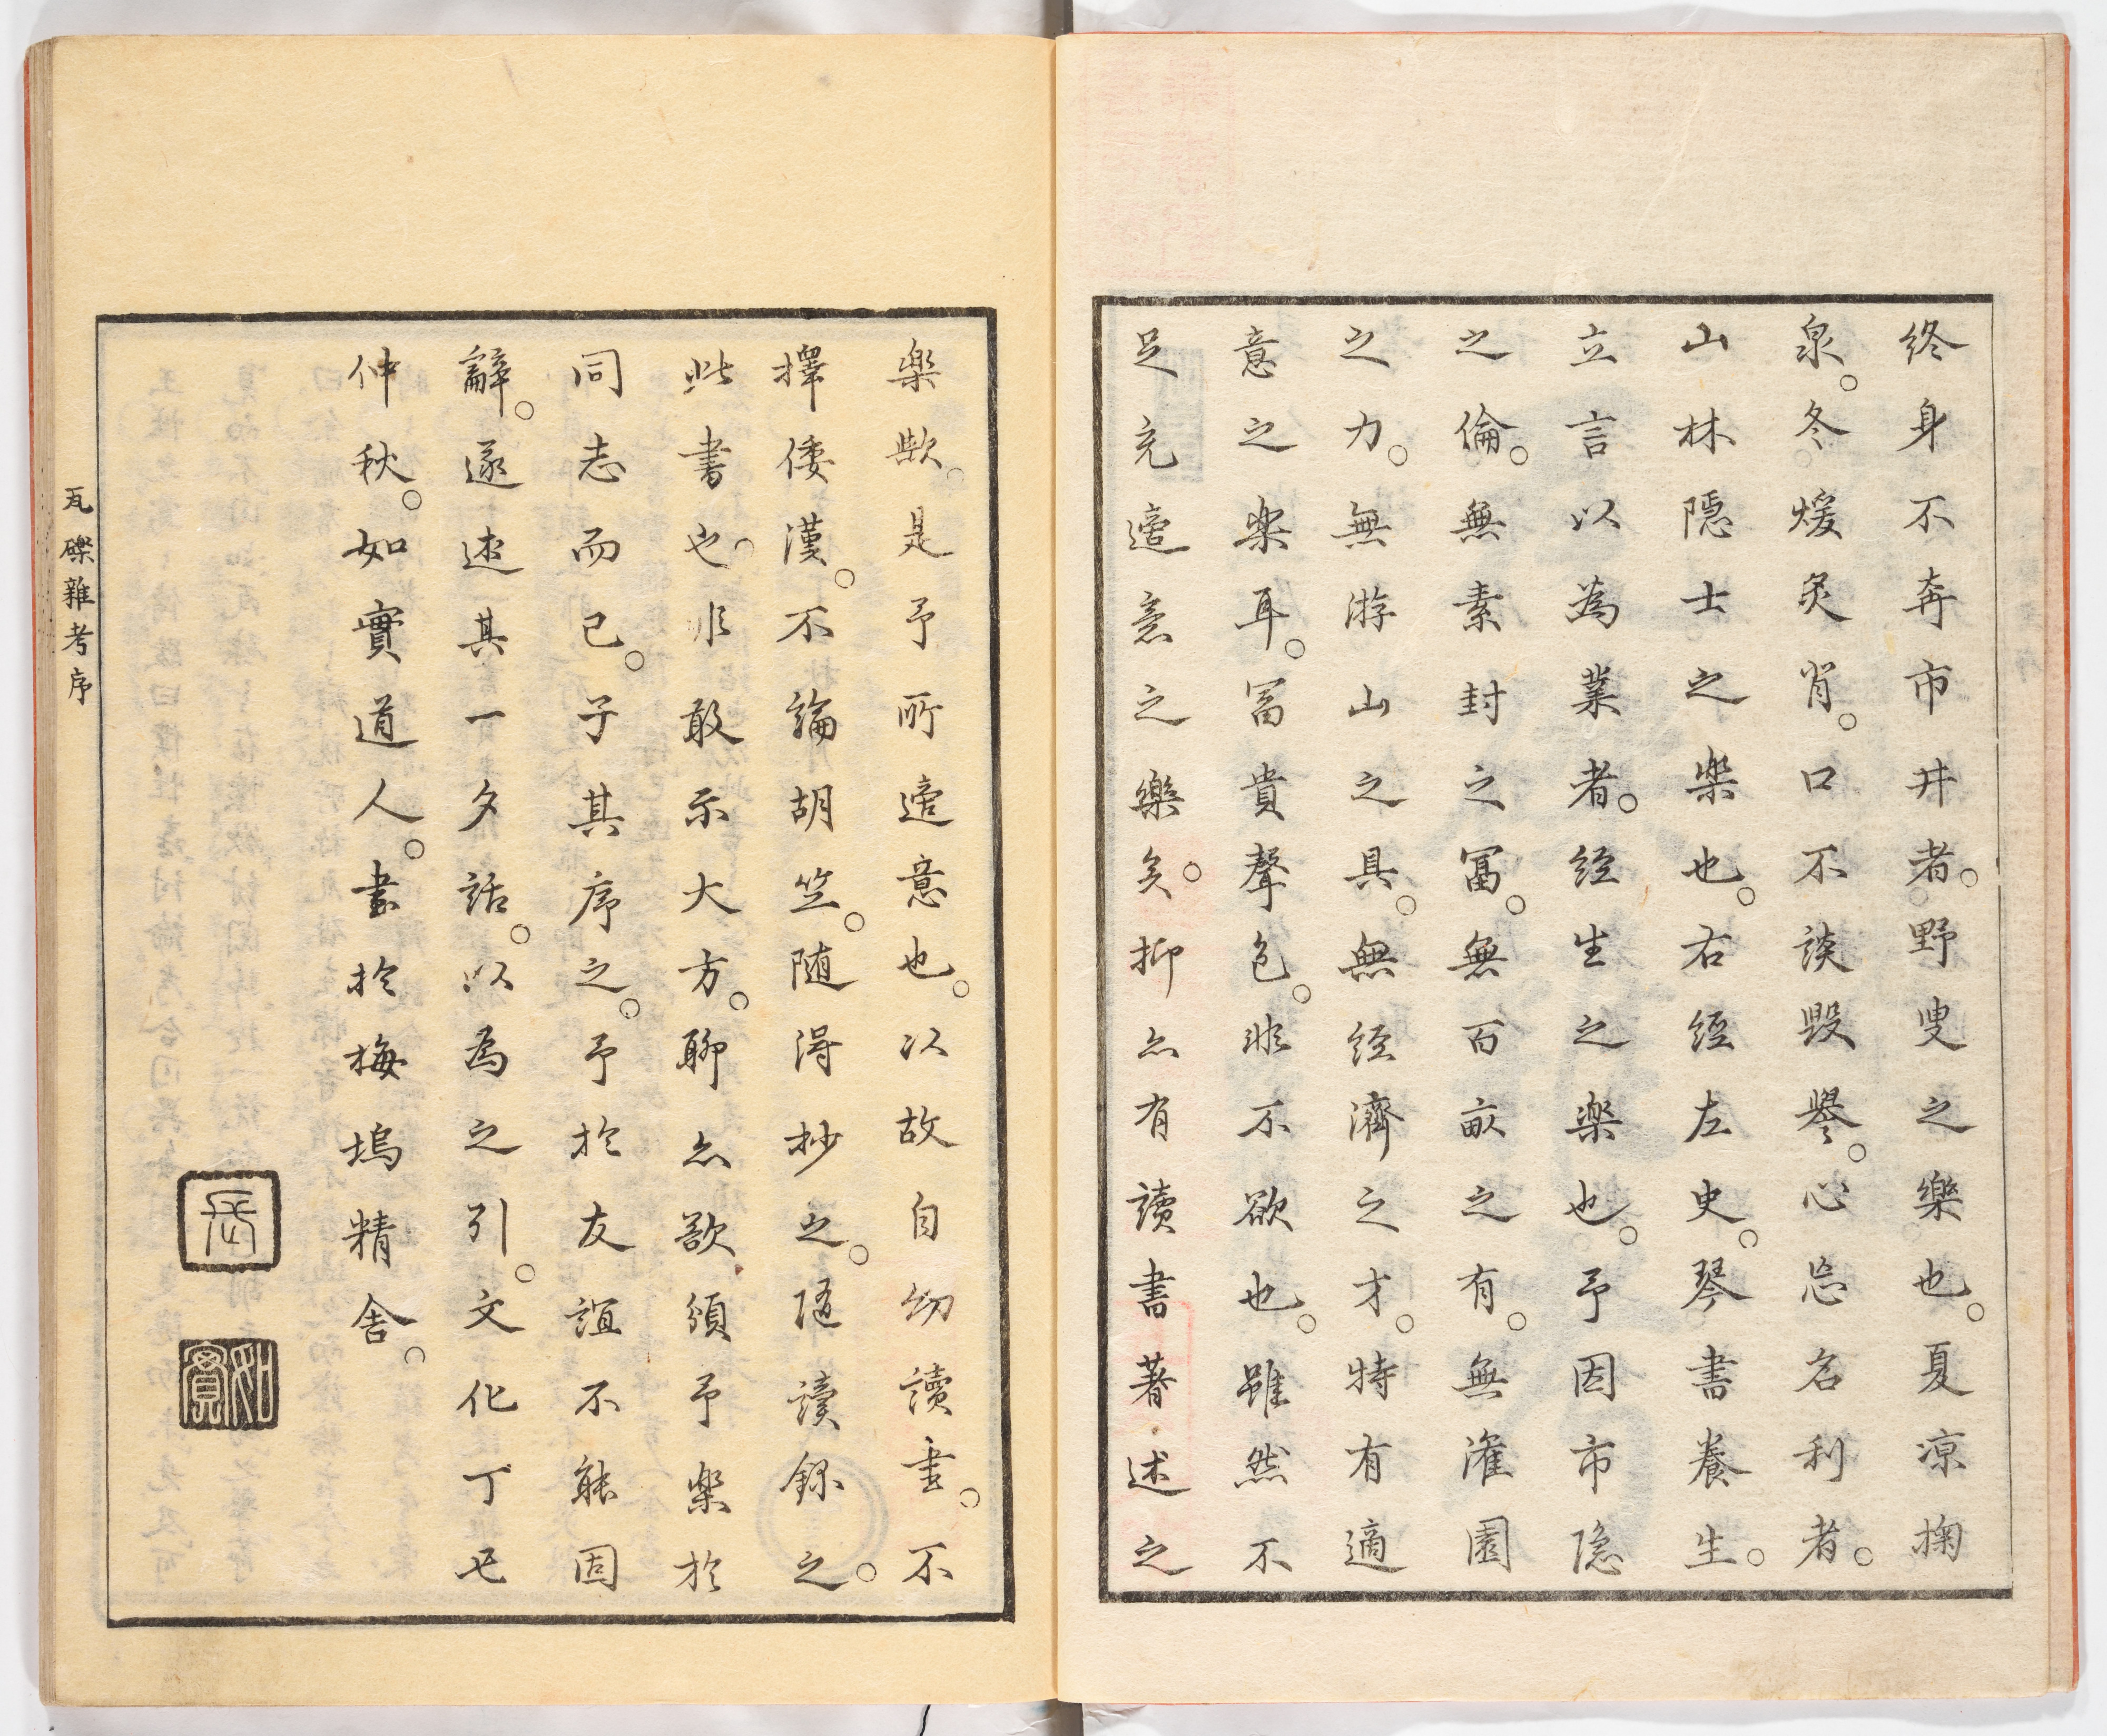 終身不奔市井者。野叟之樂也。夏凉掬
泉。冬煖炙背。口不談毀譽。心忘名利者。
山林隱士之樂也。右經左史。琴書養生。
立言以為業者。經生之樂也。予因市隐
之倫。無素封之冨。無百畝之有。無潅園
之力。無游山之具。無經濟之才。特有適
意之楽耳。冨貴聲色。非不欲也。雖然不
足充適意之樂矣。抑亦有讀書著述之
楽歟。是予所適意也。以故自幼讀書。不
擇倭漢。不論胡竺。随得抄之。随讀録之。
此書也。非敢示大方。聊亦欲頒予楽於
同志而已。子其序之。予於友誼不能固
辭。遂述其一夕話。以為之引。文化丁丑
仲秋。如實道人。書於梅塢精舎。
瓦礫雜考序
如實